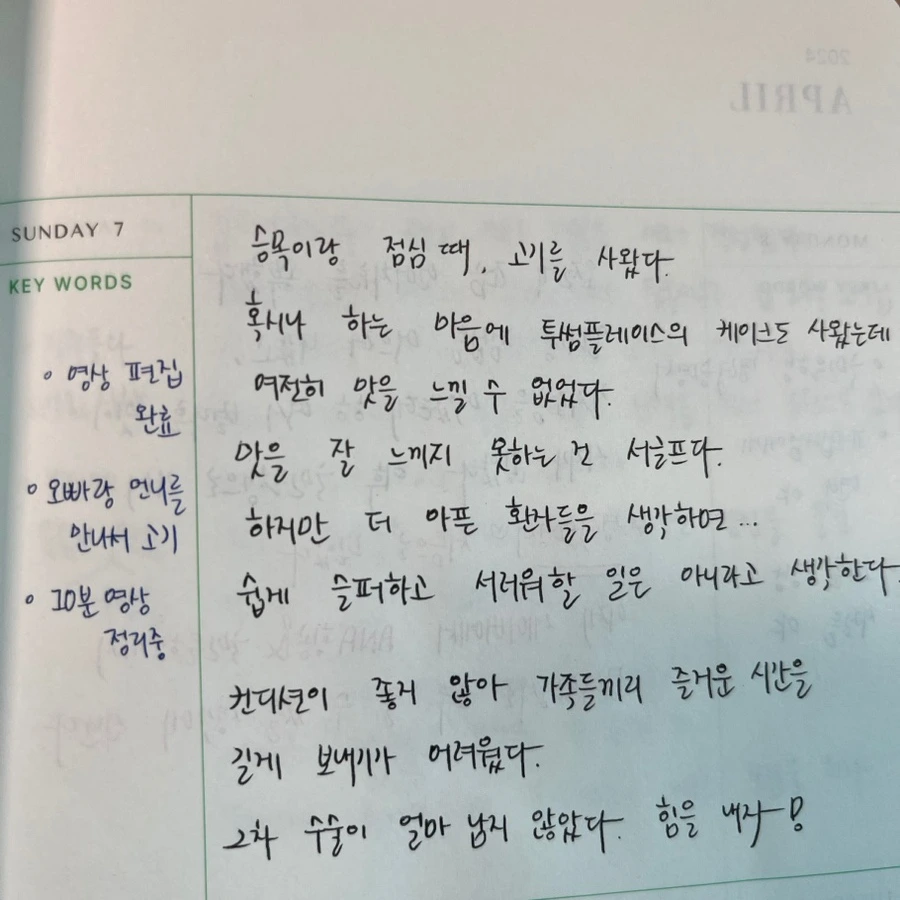 2024
APRIL
SUNDAY 7
KEY WORDS
◦ 영상 편집
완료
◦ 오빠랑 언니를
만나서 고기
◦ 10분 영상
정리중
승목이랑 점심 때, 고기를 사왔다.
혹시나 하는 마음에 투썸플레이스의 케이크도 사왔는데
여전히 맛을 느낄 수 없었다.
맛을 잘 느끼지 못하는 건 서글프다.
하지만 더 아픈 환자들을 생각하면...
쉽게 슬퍼하고 서러워할 일은 아니라고 생각한다
컨디션이 좋지 않아 가족들끼리 즐거운 시간을
길게 보내기가 어려웠다.
2차 수술이 얼마 남지 않았다. 힘을 내자-!